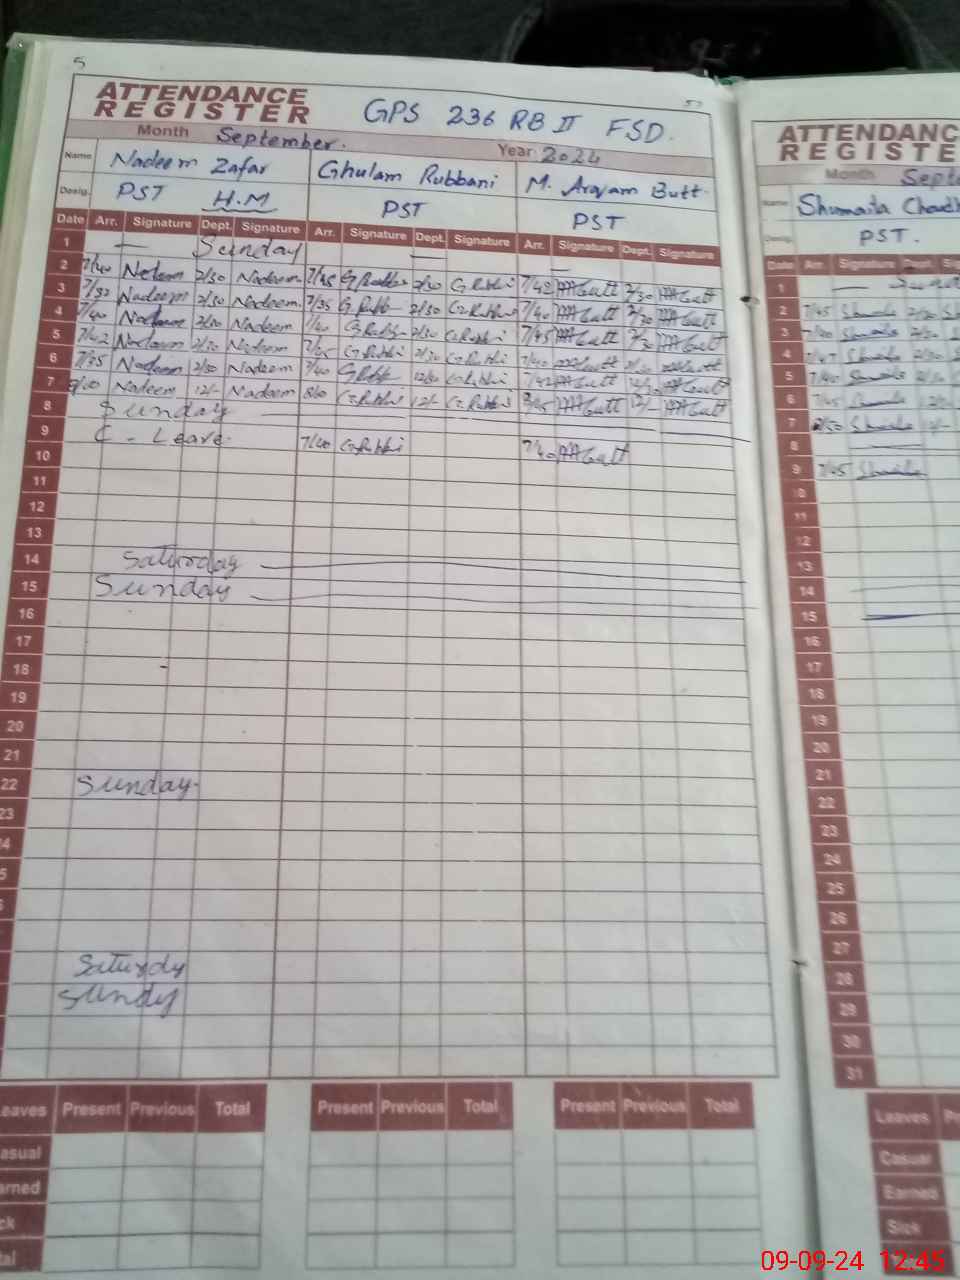 5
57
ATTENDANCE
REGISTER
GPS 236 RB II FSD.
Month September. Year 2024
Name Nadeem Zafar Ghulam Rubbani M. Arqam Butt.
Desig. PST H.M PST PST
Date Arr. Signature Dept. Signature Arr. Signature Dept. Signature Arr. Signature Dept. Signature
1 — Sunday — —
2 7/40 Nadeem 2/30 Nadeem 7/35 2/30 G.Rubbi 7/42 2/30
3 7/30 Nadeem 2/30 Nadeem. 7/35 G.Rubb 2/30 G.Rubbi 7/40 2/30
4 7/40 Nadeem 2/30 Nadeem 7/40 G.Rubbi 2/30 G.Rubbi 7/45 2/30
5 7/42 Nadeem 2/30 Nadeem 7/35 G.Rubbi 2/30 G.Rubbi 7/40 2/30
6 7/35 Nadeem 2/30 Nadeem 7/40 G.Rubb 12/30 G.Rubbi 7/42
7 8/00 Nadeem 12/- Nadeem 8/00 G.Rubbi 12/- G.Rubbi 12/-
8 Sunday
9 C - Leave. 7/40 G.Rubbi 7/40
10
11
12
13
14 Saturday
15 Sunday
16
17
18
19
20
21
22 Sunday.
23
4
5
Saturdy
Sundy
Leaves Present Previous Total Present Previous Total Present Previous Total
asual
arned
ck
tal
ATTENDANC
REGISTE
Month Septe
Name Shumaila Chaudh
Desig. PST.
Date Arr. Signature Dept. Sig
1 —
2 7/45 Shumaila 2/30
3 7/40 Shumaila 2/30
4 7/47 Shumaila 2/30
5 7/40 Shumaila 2/30
6 7/45 Shumaila 12/30
7 Shumaila 12/-
8
9 7/45 Shumaila
10
11
12
13
14
15
16
17
18
19
20
21
22
23
24
25
26
27
28
29
30
31
Leaves P
Casual
Earned
Sick
09-09-24 12:45